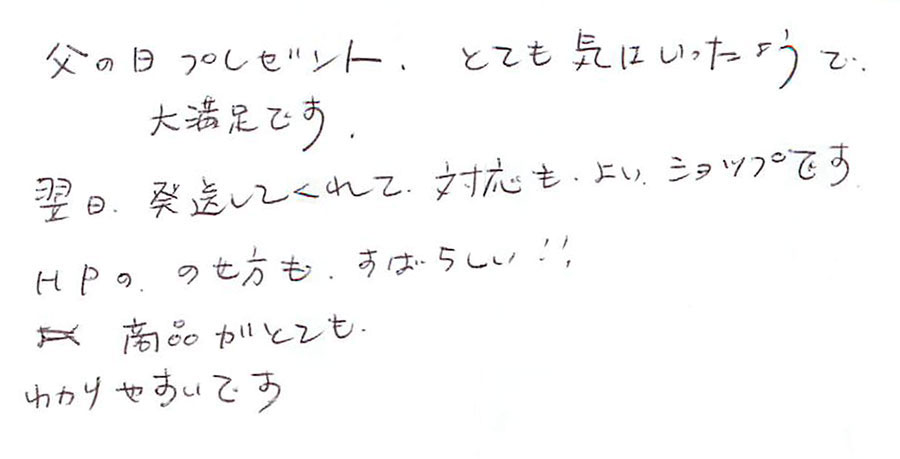 父の日プレゼント、とても気にいったようで、
大満足です、
翌日、発送してくれて、対応も、よい、ショップです
HPの、のせ方も、すばらしい!!
商品がとても、
わかりやすいです